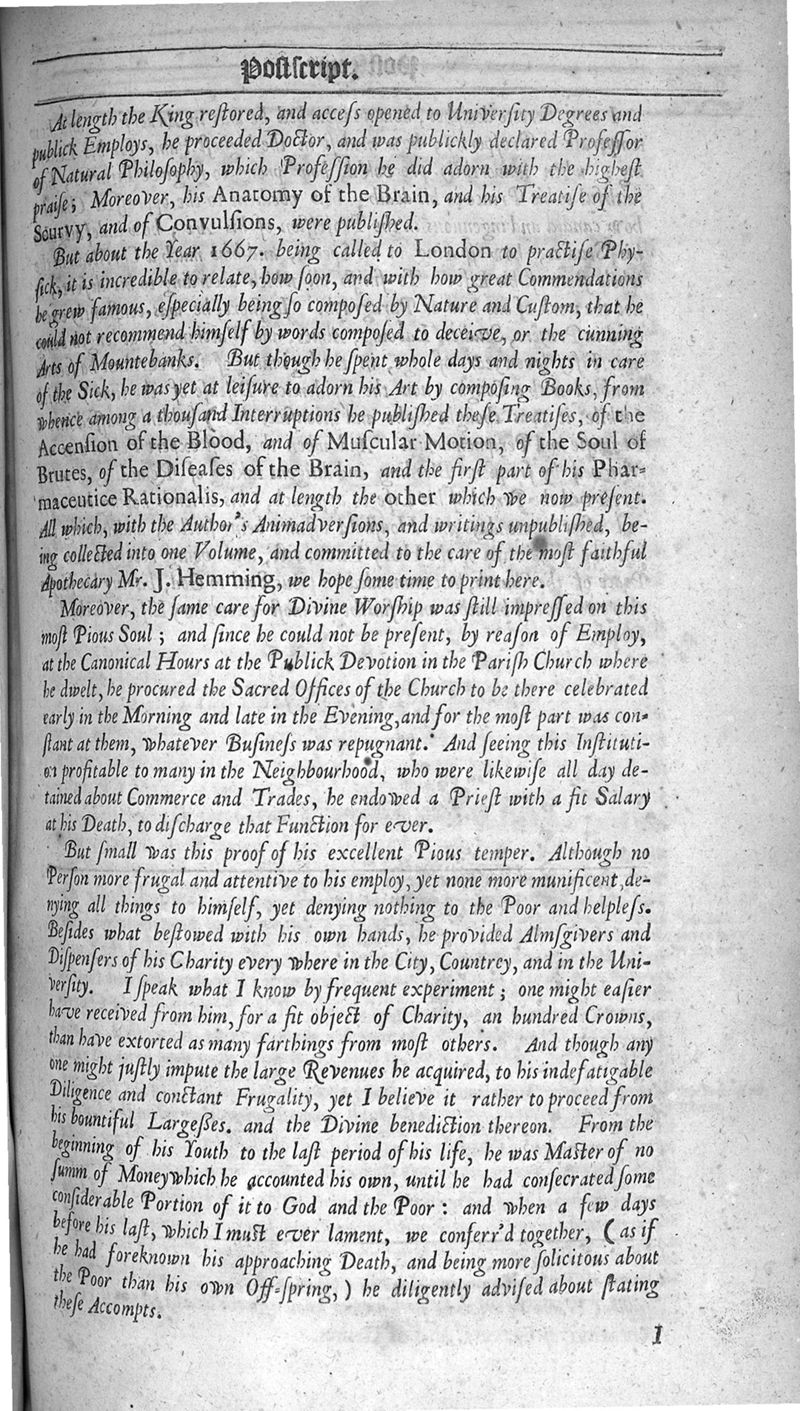 Postſcript.
At length the King reſtored, and acceſs opened to Univerſity Degrees and
publick Employs, he proceeded Doctor, and was publickly declared Profeſſor
of Natural Philoſophy, which Profeſſion he did adorn with the higheſt
praiſe; Moreover, his Anatomy of the Brain, and his Treatiſe of the
Scurvy, and of Convulſions, were publiſhed.
But about the Year 1667. being called to London to practiſe Phy-
ſick, it is incredible to relate, how ſoon, and with how great Commendations
he grew famous, eſpecially being ſo compoſed by Nature and Cuſtom, that he
could not recommend himſelf by words compoſed to deceive, or the cunning
Arts of Mountebanks. But though he ſpent whole days and nights in care
of the Sick, he was yet at leiſure to adorn his Art by compoſing Books, from
whence among a thouſand Interruptions he publiſhed theſe Treatiſes, of the
Accenſion of the Blood, and of Muſcular Motion, of the Soul of
Brutes, of the Diſeaſes of the Brain, and the firſt part of his Phar-
maceutice Rationalis, and at length the other which we now preſent.
All which, with the Author's Animadverſions, and writings unpubliſhed, be-
ing collected into one Volume, and committed to the care of the moſt faithful
Apothecary Mr. J. Hemming, we hope ſome time to print here.
Moreover, the ſame care for Divine Worſhip was ſtill impreſſed on this
moſt Pious Soul; and ſince he could not be preſent, by reaſon of Employ,
at the Canonical Hours at the Publick Devotion in the Pariſh Church where
he dwelt, he procured the Sacred Offices of the Church to be there celebrated
early in the Morning and late in the Evening, and for the moſt part was con-
ſtant at them, whatever Buſineſs was repugnant. And ſeeing this Inſtituti-
on profitable to many in the Neighbourhood, who were likewiſe all day de-
tained about Commerce and Trades, he endowed a Prieſt with a fit Salary
at his Death, to diſcharge that Function for ever.
But ſmall was this proof of his excellent Pious temper. Although no
Perſon more frugal and attentive to his employ, yet none more munificent, de-
nying all things to himſelf, yet denying nothing to the Poor and helpleſs.
Beſides what beſtowed with his own hands, he provided Almſgivers and
Diſpenſers of his Charity every where in the City, Countrey, and in the Uni-
verſity. I ſpeak what I know by frequent experiment; one might eaſier
have received from him, for a fit object of Charity, an hundred Crowns,
than have extorted as many farthings from moſt others. And though any
one might juſtly impute the large Revenues he acquired, to his indefatigable
Diligence and conctant Frugality, yet I believe it rather to proceed from
his bountiful Largeſſes. and the Divine benediction thereon. From the
beginning of his Youth to the laſt period of his life, he was Maſter of no
ſumm of Money which he accounted his own, until he had conſecrated ſome
conſiderable Portion of it to God and the Poor: and when a few days
before his laſt, which I muſt ever lament, we conferr'd together, (as if
he had foreknown his approaching Death, and being more ſolicitous about
the Poor than his own Off-ſpring,) he diligently adviſed about ſtating
theſe Accompts.
I